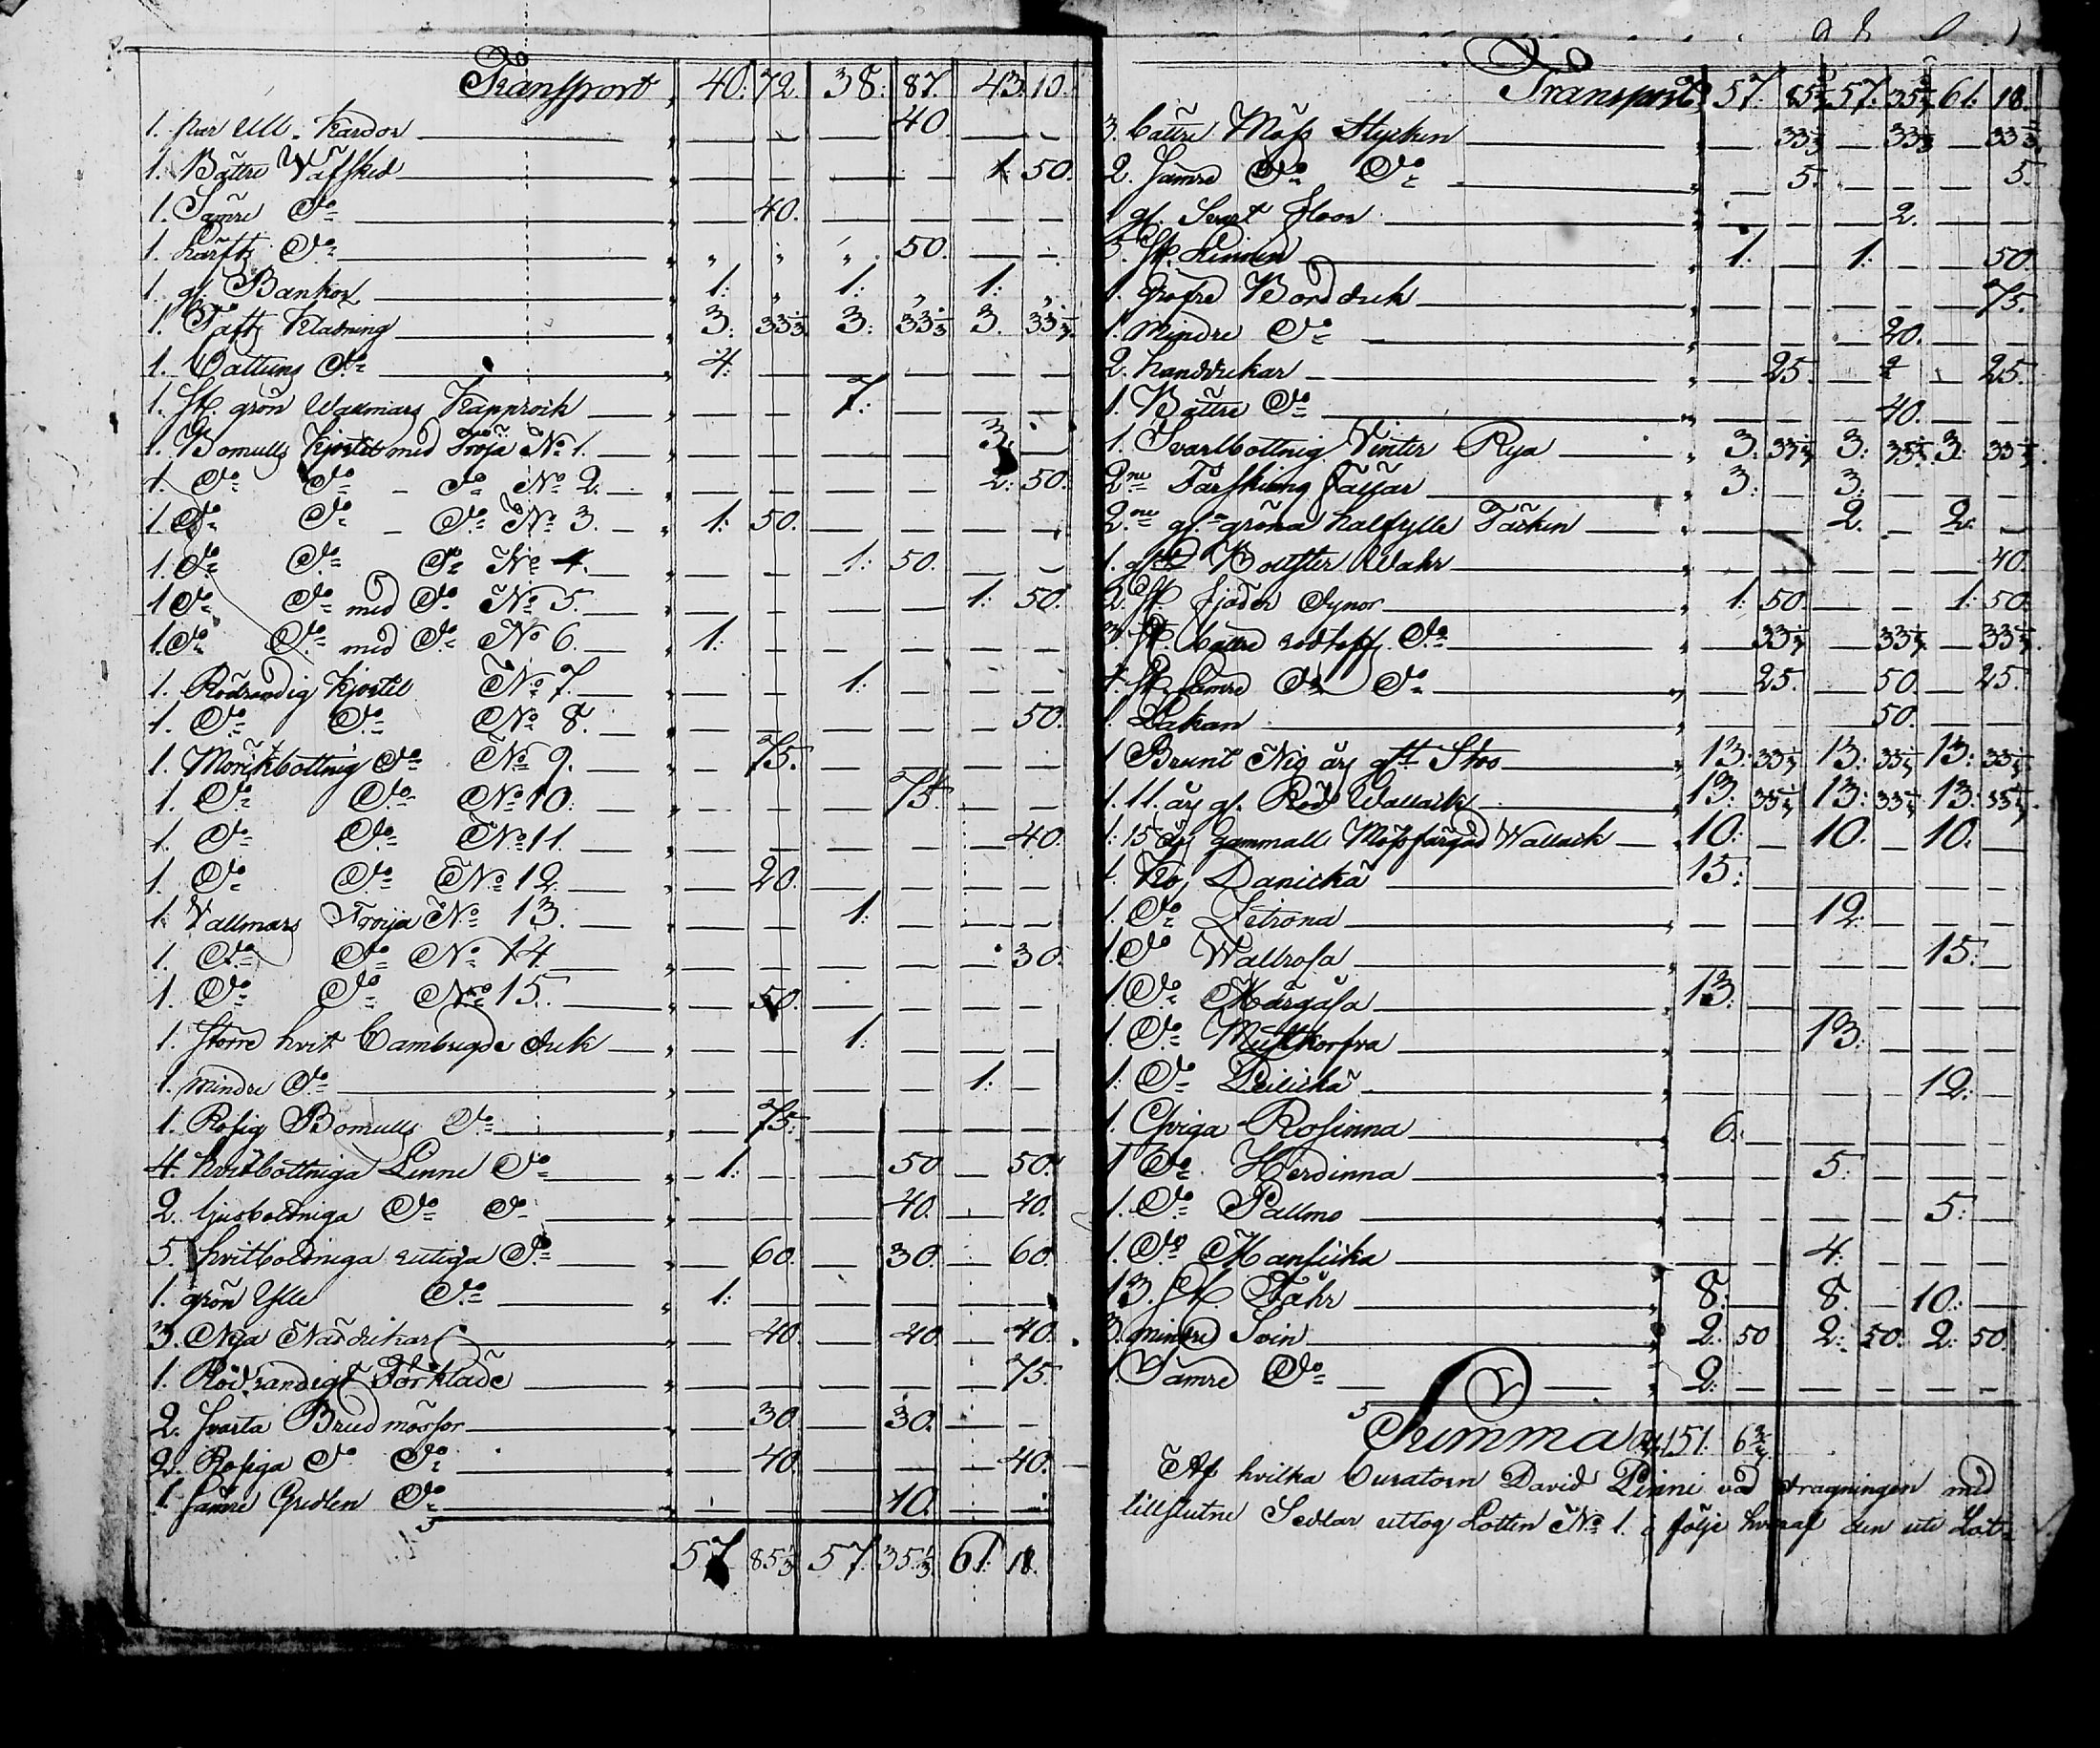 Transport 40: 72. 38: 87. 43. 10.
1. par Ull. Kardor — — — 40. — —
1. Bättre Väfsked — — — — 1. 50.
1. Sämre Do — 40. — — — —
1. härfts Do " " " 50. — —
1. gl. Bankor 1: " 1: " 1: "
1. Tafts Kladning 3: 33⅓ 3: 33⅓ 3. 33⅓
1. Cattuns Do 4: — — — — —
1. St. grön Wallmars Kapprock — — 7: — — —
1. Bomulls Kjortel med Tröja No 1. — — — — 3. —
1. Do Do — Do No 2. — — — — 2: 50.
1. Do Do — Do No 3. 1: 50. — — — —
1. Do Do Do No 4. — — 1: 50. — —
1 Do Do med Do No 5. — — — — 1: 50.
1. Do Do med Do No 6. 1: — — — — —
1. Rödrandig Kjortel No 7. — — 1: — — —
1. Do Do No 8. — — — — — 50.
1. Mörkbottnig Do No 9. — 75. — — — —
1. Do Do No 10. — — — 75. — —
1. Do Do No 11. — — — — — 40.
1. Do Do No 12. — 20. — — — —
1. Vallmars Tröija No 13. — — 1: — — —
1. Do Do No 14 — — — — — 30.
1. Do Do No 15. — 50. — — — —
1. Större hvit Cambrigde duk — — 1: — — —
1. mindre Do — — — — 1: —
1. Rosig Bomulls Do — 75. — — — —
4. hvitbottniga Linne Do 1: — — 50 — 50.
2. ljusbottniga Do Do — — — 40. — 40.
5. hvitbottniga rutiga Do — 60. — 30. — 60.
1. grön Ylle Do 1: — — — — —
3. Nya Näsdukar — 40. — 40. — 40.
1. Rödrandigt Förkläde — — — — — 75.
2. Svarta Brudmössor — 30. — 30. — —
2. Rosiga Do Do — 40. — — — 40.
1. Sämre Gredlen Do — — — 10. — —
57 85⅓ 57. 35⅓ 61. 18.
Transport 57. 85⅓ 57. 35⅓ 61. 18.
3. bättre Möss Stycken — 33⅓ — 33⅓ — 33⅓
2. Sämre Do Do — 5. — — — 5.
1 gl. Svart Floor — — — 2. — —
3. St. 1: — 1: — — 50.
1. grofre Bordduk — — — — — 75.
1. mindre Do — — — 20. — —
2. handdukar — 25. — — 25.
1. Bättre Do — — — 40. — —
1. Svartbottnig Vinter Rya 3: 33⅓ 3: 33⅓ 3: 33⅓
2ne Fårskinns Fällar 3: — 3: — — —
2.ne gl.a gröna halfylle Täcken — — 2. — 2. —
1. glt Bolster Wahr — — — — — 40.
2. St. Fjäder Dynor 1: 50. — — 1: 50
3. St. bättre Do — 33⅓ — 33⅓ — 33⅓
4. St. Sämre Do Do — 25. — 50. — 25.
1. Lakan — — — 50. — —
1 Brunt Nio års glt Stoo 13: 33⅓ 13: 33⅓ 13: 33⅓
1. 11. års gl. Röd Wallack 13: 33⅓ 13: 33⅓ 13: 33⅓
1: 15 års gammall Mössfärgad Wallack 10: — 10. — 10: —
1. Ko, Danickä 15: — — — — —
1. Do Fetrona — — 12: — — —
1. Do Wallrosa — — — — 15. —
1 Do Kärgåsa 13: — — — — —
1. Do Mustkorfva — — 13: — — —
1: Do Leilickä — — — — 12: —
1. Qviga Rosinna 6: — — — — —
1 Do Herdinna — — 5. — — —
1. Do Pallmo — — — — 5: —
1. Do Mansicka — — 4: — — —
13. St. Fåhr 8: — 8. — 10: —
3. mindre Svin 2: 50 2: 50. 2: 50.
1 Sämre Do 2: — — — — —
Summa 151. 6⅔
Af hvilka Curatorn David Pinni vid dragningen med
tillslutne Sedlar uttog Lotten No 1. i följe hvaraf den ute Lot-